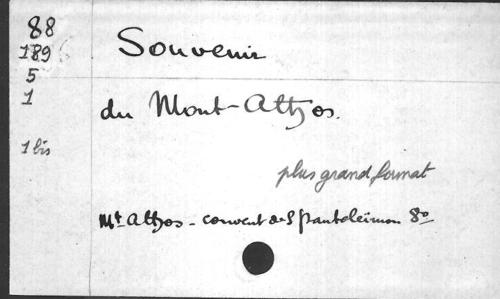 88
189
5
1
1 bis
Souvenir
du Mont-Athos.
plus grand format
Mt Athos - couvent de S Panteleimon 8o